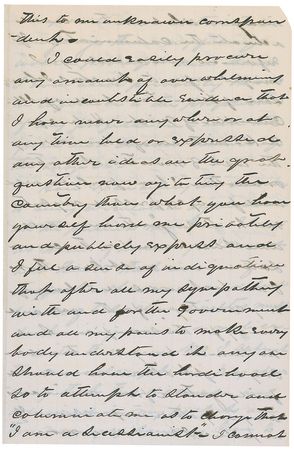 this to an unknown correspon
dent.
I could easily procure
any amount of overwhelming
and incontestible evidence that
I have never any where or at
any time held or expressed
any other ideas on the great
question now agitating the
Country than what you have
yourself heard me privately
and publicly express and
I feel a sense of indignation
that after all my sympathy
with and for the Government
and all my pains to make every
body understand it any one
should have the hardihood
so to attempt to slander and
calumniate me as to charge that
"I am a secessionist" I cannot